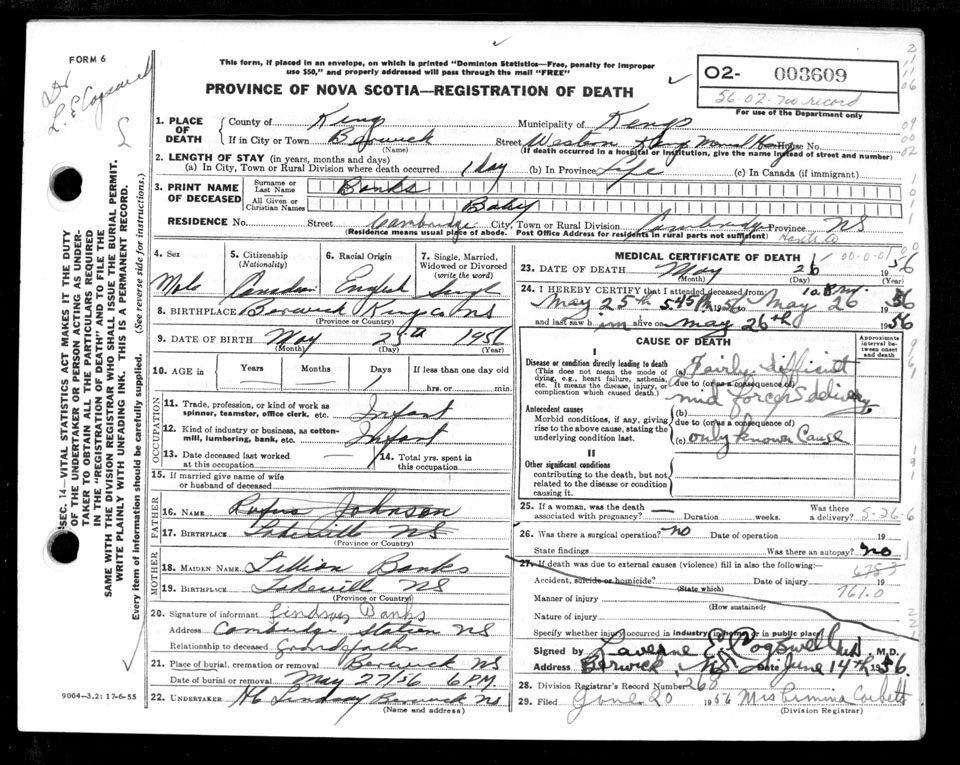 FORM 6
Dr L. E Cogswell
This form, if placed in an envelope, on which is printed "Dominion Statistics—Free, penalty for improper
use $50," and properly addressed will pass through the mail "FREE"
PROVINCE OF NOVA SCOTIA—REGISTRATION OF DEATH
O2- 003609
56-02-no record
For use of the Department only
1. PLACE OF DEATH County of Kings Municipality of Kings
If in City or Town Berwick Street Western Kings Mem'l House No.
(Name) (If death occurred in a hospital or institution, give the name instead of street and number)
2. LENGTH OF STAY (in years, months and days)
(a) In City, Town or Rural Division where death occurred 1 day (b) In Province Life (c) In Canada (if immigrant)
3. PRINT NAME OF DECEASED Surname or Last Name Banks
All Given or Christian Names Baby
RESIDENCE No. Street Cambridge City, Town or Rural Division Cambridge Province NS
(Residence means usual place of abode. Post Office Address for residents in rural parts not sufficient)
4. Sex Male
5. Citizenship (Nationality) Canadian
6. Racial Origin English
7. Single, Married, Widowed or Divorced (write the word) Single
8. BIRTHPLACE Berwick Kings Co NS
(Province or Country)
9. DATE OF BIRTH May 25th 1956
(Month) (Day) (Year)
10. AGE in Years Months Days 1 If less than one day old hrs. or min.
OCCUPATION
11. Trade, profession, or kind of work as spinner, teamster, office clerk, etc. Infant
12. Kind of industry or business, as cotton-mill, lumbering, bank, etc. Infant
13. Date deceased last worked at this occupation
14. Total yrs. spent in this occupation
15. If married give name of wife or husband of deceased
FATHER
16. NAME Rufus Johnson
17. BIRTHPLACE Lakeville NS
(Province or Country)
MOTHER
18. MAIDEN NAME Lillian Banks
19. BIRTHPLACE Lakeville NS
(Province or Country)
20. Signature of informant Lindsay Banks
Address Cambridge Station NS
Relationship to deceased Grandfather
21. Place of burial, cremation or removal Berwick NS
Date of burial or removal May 27/56 6 PM.
22. UNDERTAKER Lindsay Berwick NS
(Name and address)
MEDICAL CERTIFICATE OF DEATH
00-0-01
23. DATE OF DEATH May 26 1956
(Month) (Day) (Year)
24. I HEREBY CERTIFY that I attended deceased from
May 25th 5.45 PM 1956 to May 26 1956
and last saw him alive on May 26th 1956
CAUSE OF DEATH
Approximate interval between onset and death
I
Disease or condition directly leading to death
(This does not mean the mode of dying, e.g., heart failure, asthenia, etc. It means the disease, injury, or complication which caused death.)
(a) Fairly difficult
due to (or as a consequence of)
mid forceps delivery
Antecedent causes
Morbid conditions, if any, giving rise to the above cause, stating the underlying condition last.
(b)
due to (or as a consequence of)
(c) only known Cause
II
Other significant conditions
contributing to the death, but not related to the disease or condition causing it.
25. If a woman, was the death associated with pregnancy? — Duration weeks. Was there a delivery? 5-26-6
26. Was there a surgical operation? No Date of operation 19
State findings Was there an autopsy? No
27. If death was due to external causes (violence) fill in also the following:—
Accident, suicide or homicide? Date of injury 19
(State which)
761.0
Manner of injury
(How sustained)
Nature of injury
Specify whether injury occurred in industry, in home or in public place
Signed by Laverne E Cogswell MD, M.D.
Address Berwick, NS. Date June 14th 1956.
28. Division Registrar's Record Number 268
29. Filed June 20 1956 Mrs Corbett
(Division Registrar)
SEC. 14—VITAL STATISTICS ACT MAKES IT THE DUTY
OF THE UNDERTAKER OR PERSON ACTING AS UNDER-
TAKER TO OBTAIN ALL THE PARTICULARS REQUIRED
IN THE "REGISTRATION OF DEATH" AND TO FILE THE
SAME WITH THE DIVISION REGISTRAR WHO SHALL ISSUE THE BURIAL PERMIT.
WRITE PLAINLY WITH UNFADING INK. THIS IS A PERMANENT RECORD.
Every item of information should be carefully supplied. (See reverse side for instructions.)
9004—3.2: 17-6-55